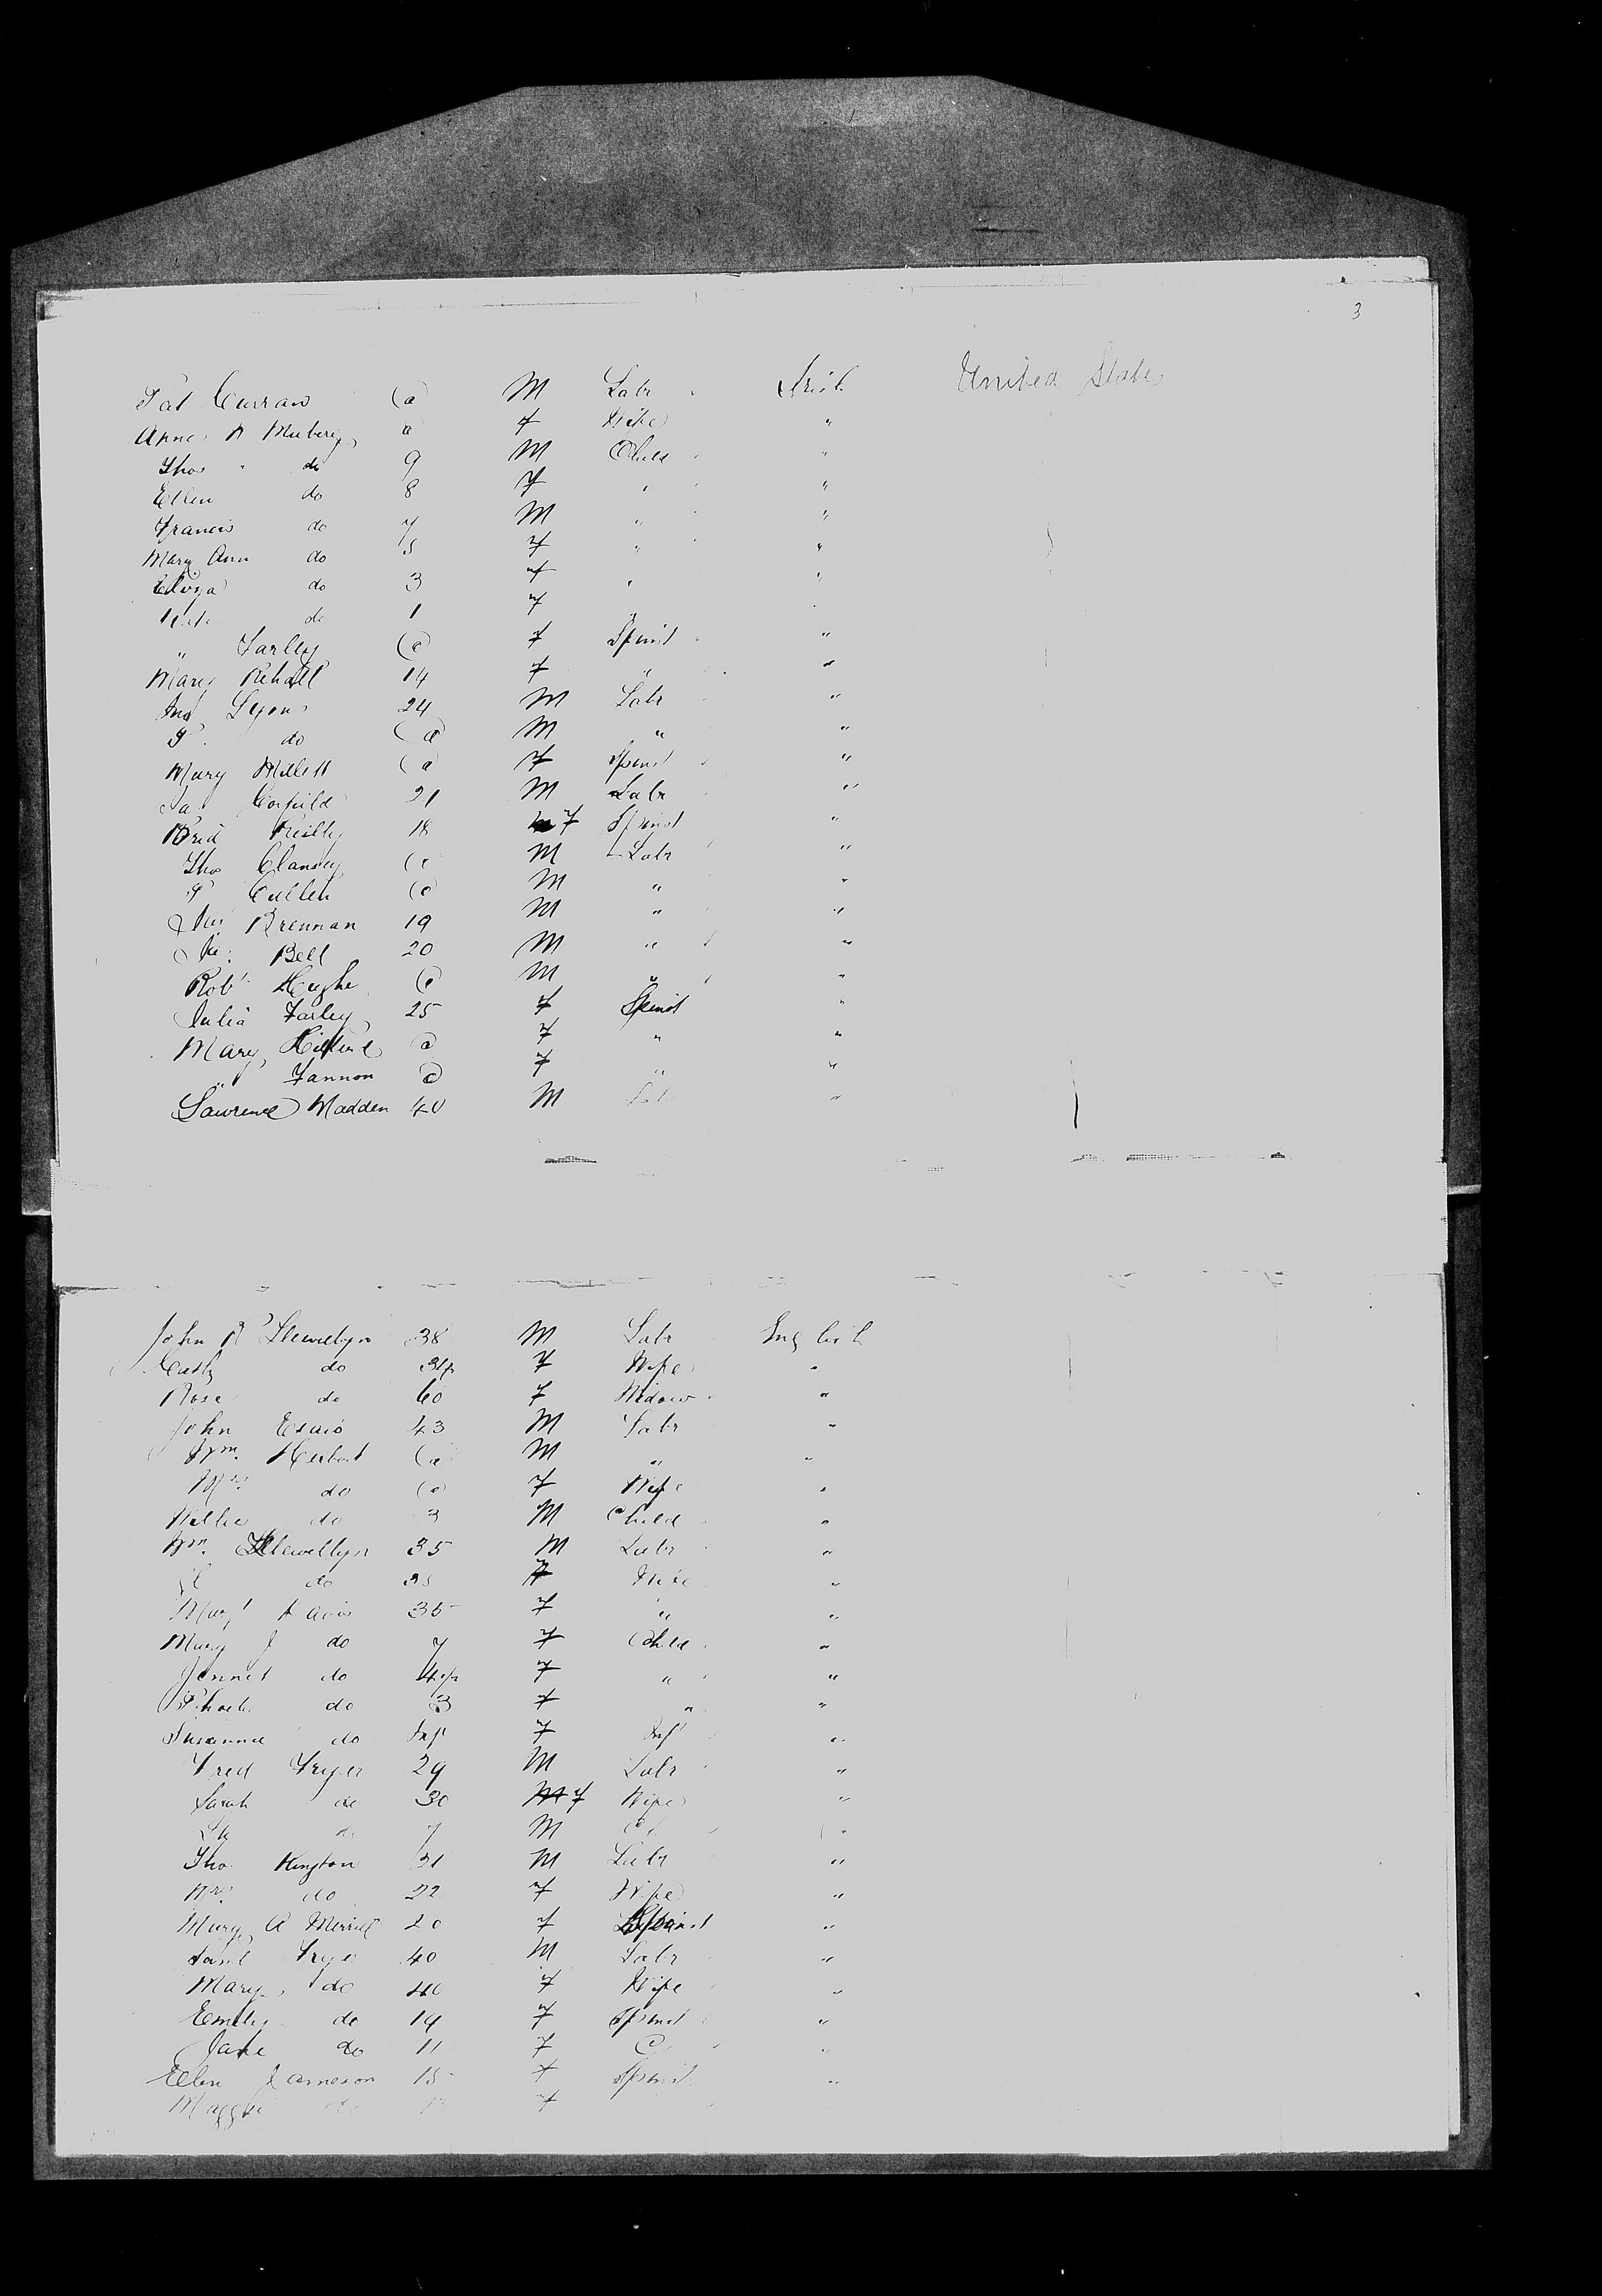 3
Pat Curran (a M Labr Irish United State
Anne a f Wife "
Thos " do 9 M Child "
Ellen do 8 f " "
Francis do 7 M " "
Mary Ann do 5 f " "
Eliza do 3 f " "
do 1 f
" Farley (a f Spinst "
Mary 14 f " "
Lyons 24 M Labr "
P do (a M " "
Mary Millett (a f Spinst "
Jas Corfield 21 M Labr "
Brid Reilly 18 f Spinst "
Thos Clansey (a M Labr "
P Cullen (a M " "
Jas Brennan 19 M " "
Jas. Bell 20 M " "
Robt Hughe (a M " "
Julia Farley 25 f Spinst "
Mary @ f " "
" Fannon @ f " "
Lawrence Madden 40 M Lab "
John R Llewellyn 38 M Labr English
Cath do 34 f Wife "
Rose do 60 f Widow "
John 43 M Labr "
Wm. Herbert (a M " "
Mrs do (a f Wife "
Willie do 3 M Child "
Wm. Llewellyn 35 M Labr "
do 35 f Wife "
Margt Davis 35 f " "
Mary J do 7 f Child "
Jennet do 4 f " "
Phoebe do 3 f " "
Susanna do Inf f Inf "
Fred Fryer 29 M Labr "
Sarah do 30 f Wife "
do 7 M "
Tho Kington 31 M Labr "
Mrs do 22 f Wife "
Mary A Merrick 20 f Spinst "
Saml Frye 40 M Labr "
Mary do 40 f Wife "
Emily do 19 f Spinst "
Jane do 11 f C "
Ellen Jameson 15 f Spinst "
Maggie do 13 f